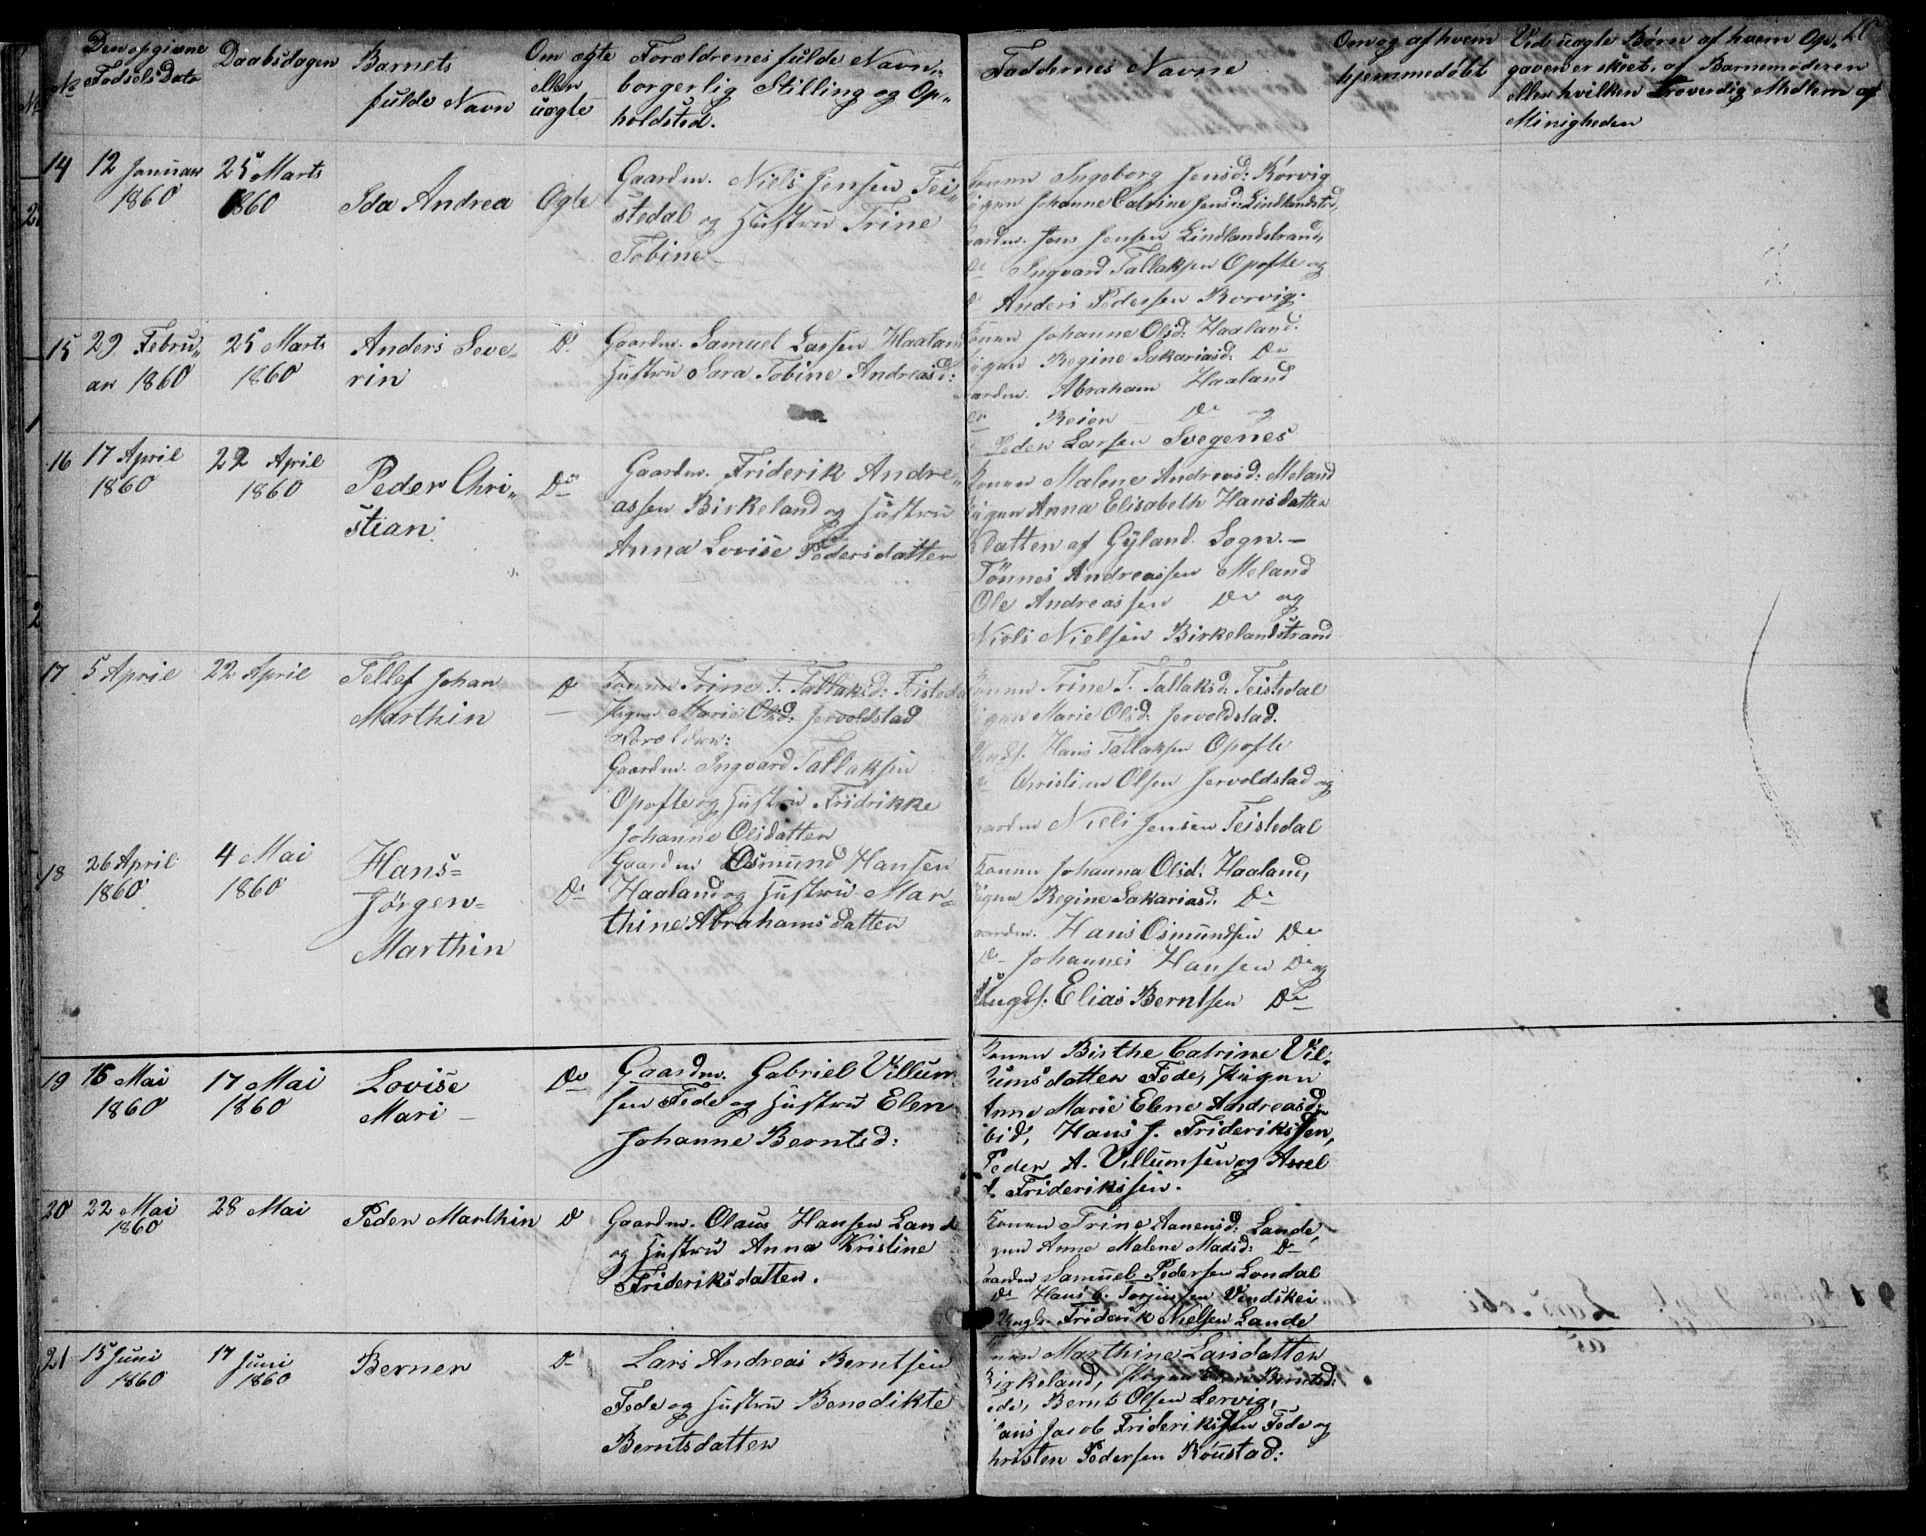 No Den opgivne Fødsels Dato
Daabsdagen
Barnets fulde Navn
Om ægte eller uægte
Forældrenes fulde Navn, borgerlig Stilling og Opholdsted.
Faddernes Navne
Om og af hvem hjemmedøbt
Ved uægte Børn af hvem Opgaven er skeet, af Barnemoderen eller hvilken troverdig Medlem af Minigheden
14
12 Januar
1860
25 Marts
1860
Ida Andrea
Ægte
Gaardm. Niels Jensen Tei„
stedal og Hustru Trine
Tobine
Ingeborg Jensd: Rørvig
Johanne Catrine Jensd: Lindlandstrd,
Jens Jensen Lindlandstrand,
Do Ingvard Tallaksen Opofte og
Do Anders Pedersen Rorvig.
15
29 Febru„
ar 1860
25 Marts
1860
Anders Seve-
rin
Do
Gaardm. Samuel Larsen Haaland
Hustru Sara Tobine Andreasd:
Johanne Olsd: Haaland.
Regine Sakariasd: Do
Abraham Haaland
Do Reier Do og
Peder Larsen Svegenes
16
17 April
1860
22 April
1860
Peder Chri„
stian.
Do
Gaardm. Friderik Andre„
assen Birkeland og Hustru
Anna Lovise Pedersdatter
Konen Malene Andreasd: Meland
Pigen Anna Elisabeth Hansdatter
Klatten af Gyland Sogn.—
Tönnes Andreassen Meland
Ole Andreassen Do og
Niels Nielsen Birkelandstrand
17
5 April
22 April
Tellef Johan
Marthin
Do
Konen Trine T. Tallaksd: Teistedal
Pigen Marie Olsd: Jervoldstad
Foreldre:
Gaardm. Ingvard Tallaksen
Opofte og Hustru Fridrikke
Johanne Olsdatter
Konen Trine T. Tallaksd: Teistedal
Pigen Marie Olsd: Jervoldstad.
Hans Tallaksen Opofte
Do Christian Olsen Jervoldstad og
Niels Jensen Teistedal
18
26 April
1860
4 Mai
1860
Hans=
Jörgen=
Marthin
Do
Gaardm Osmund Hansen
Haaland og Hustru Mar„
thine Abrahamsdatter
Konen Johanna Olsd: Haaland,
Pigen Regine Sakariasd: Do
Hans Osmundsen Do
Do Johannes Hansen Do og
Ungks. Elias Berntsen Do
19
16 Mai
1860
17 Mai
1860
Lovise
Mari —
Do
Gaardm. Gabriel Villum
sen Fede og Hustru Elen
Johanne Berntsd:
Konen Birthe Catrine Vil„
lumsdatter Fede, Pigen
Anne Marie Elene Andreasd:
ibid, Hans J. Frideriksen,
Peder A. Villumsen og Axel
Frideriksen.
20
22 Mai
1860
28 Mai
Peder Marthin
Do
Gaardm. Olaus Hansen Lande
og Hustru Anna Kristine
Frideriksdatter.
Konen Trine Aanensd: Lande,
Anne Malene Madsd: Do
Samuel Pedersen Londal
Do Hans Torjussen Vindskei
Ungk. Friderik Nielsen Lande
21
15 Juni
1860
17 Juni
1860
Berner
Do
Lars Andreas Berntsen
Fede og Hustru Benedikte
Berntsdatter
Marthine Larsdatter
Birkeland, Pigen Berntsd:
Bernt Olsen Lervig,
Jacob Frideriksen Fede og
Pedersen Röustad: